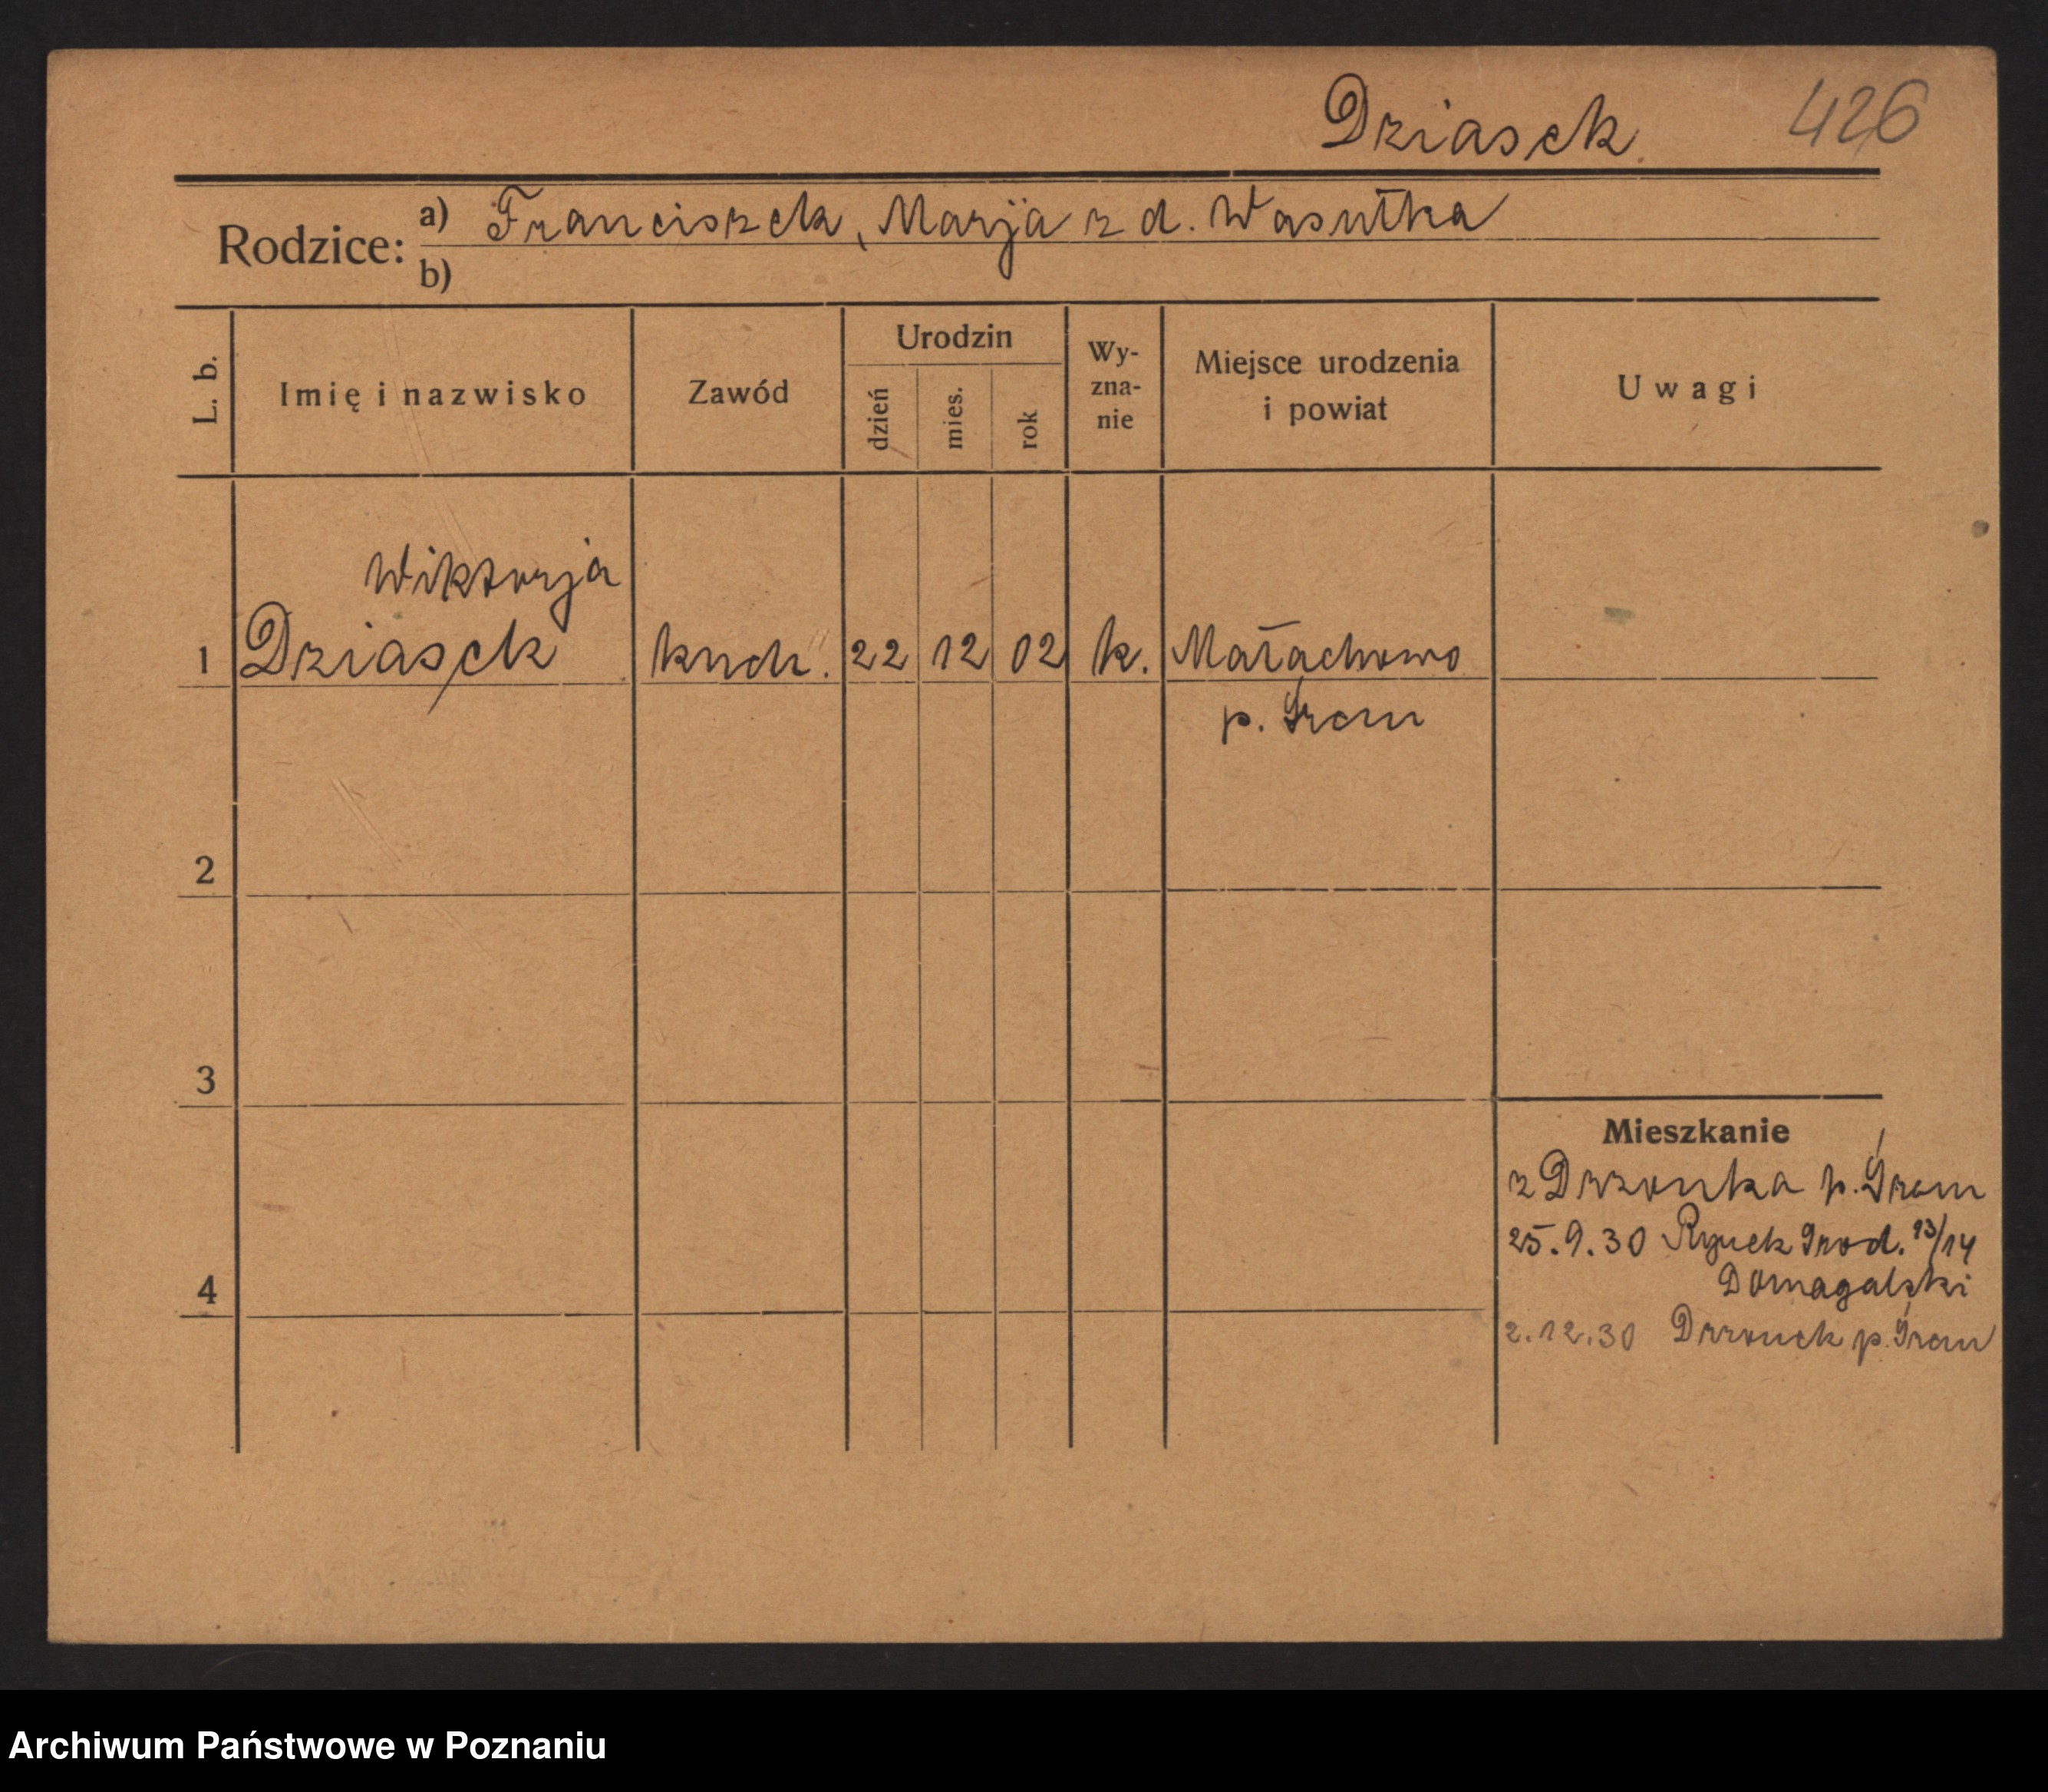 Dziasek 426
Rodzice: a) Franciszek, Marja z d. Wasułka
b)
L. b. Imię i nazwisko Zawód Urodzin dzień mies. rok Wy-zna-nie Miejsce urodzenia i powiat Uwagi
Wiktorja
1 Dziasek kuch. 22 12 02 k. Małachowo
p. Śrem
2
3
Mieszkanie
z Drzonka p. Śrem
25.9.30 Rynek Śród. 13/14
4 Domagalski
2.12.30 Drzonek p. Śrem
Archiwum Państwowe w Poznaniu